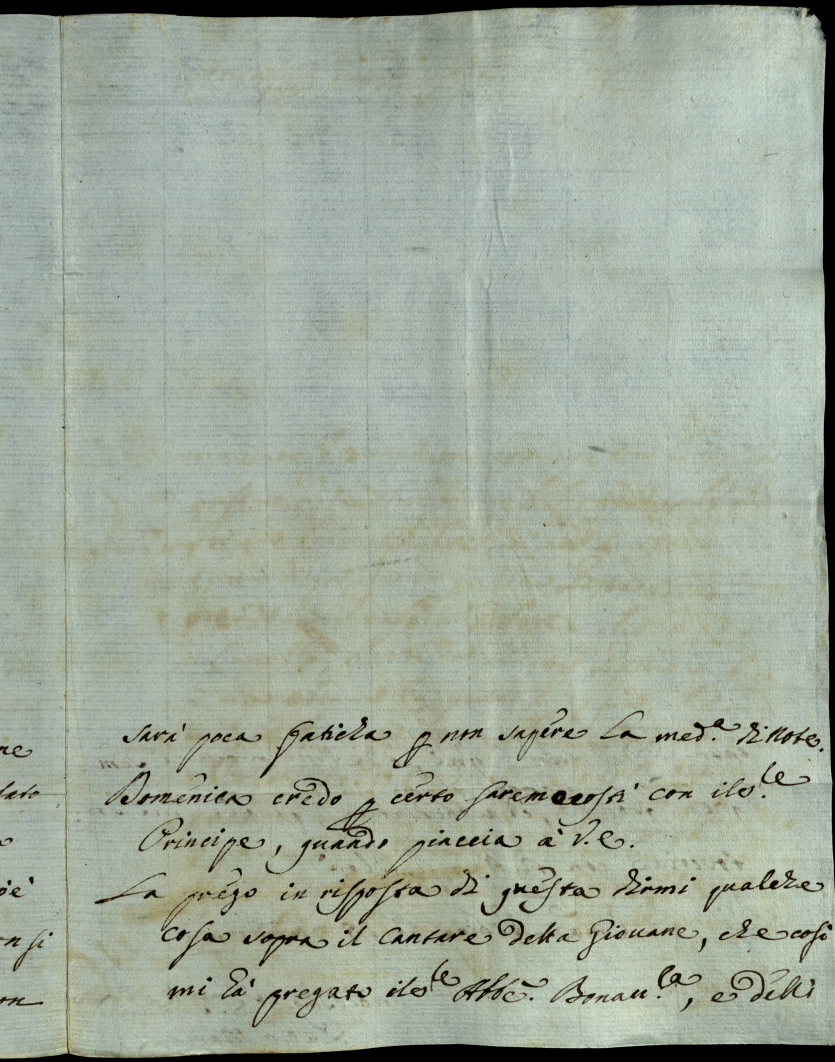 sarà poca faticha p non sapere la med.ª di note.
Domenica credo p certo saremo costì con il s.le
Principe, quando piaccia à V.e.
La prego in risposta di questa dirmi qualche
cosa sopra il Cantare della Giovane, che così
mi hà pregato il s.le Abbe. Bonau.la, e delli
ne
sato
o
oè
on si
on